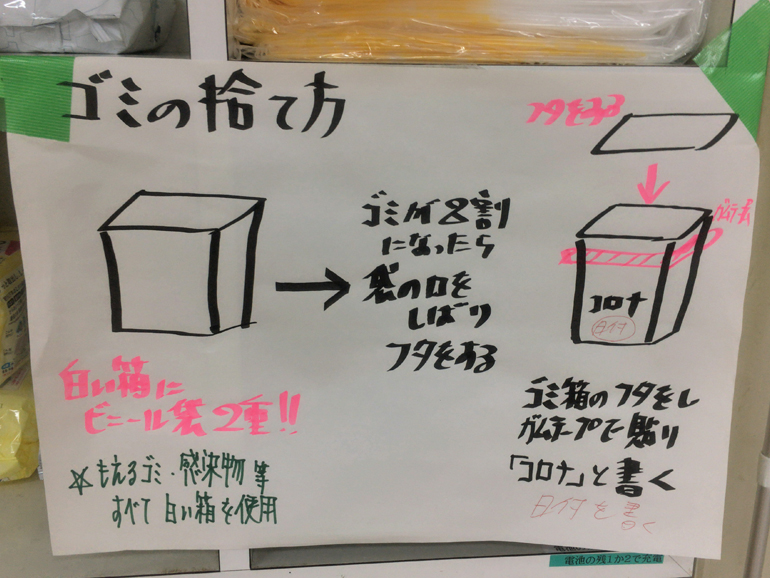 ゴミの捨て方
フタをする
ガムテープ
コロナ
日付
ゴミが8割
になったら
袋の口を
しばり
フタをする
白い箱に
ビニール袋2重!!
☆もえるゴミ・感染物等
すべて白い箱を使用
ゴミ箱のフタをし
ガムテープで貼り
「コロナ」と書く
日付を書く
電池の残1か2で充電